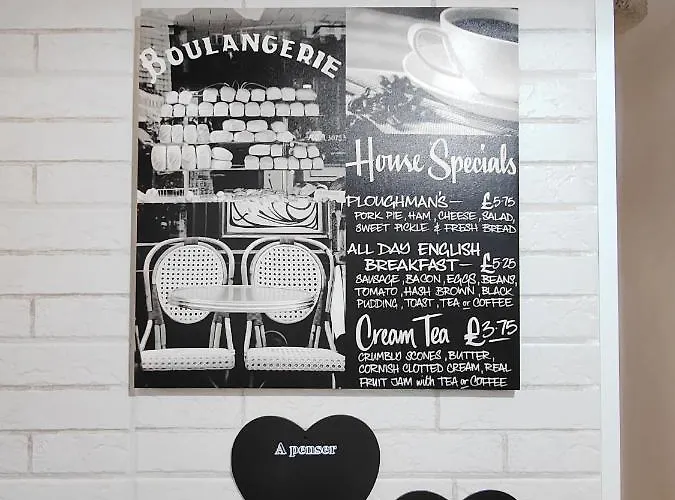 BOULANGERIE
House Specials
PLOUGHMAN'S — £5.75
PORK PIE, HAM, CHEESE, SALAD,
SWEET PICKLE & FRESH BREAD
ALL DAY ENGLISH
BREAKFAST — £5.25
SAUSAGE, BACON, EGGS, BEANS,
TOMATO, HASH BROWN, BLACK
PUDDING, TOAST, TEA or COFFEE
Cream Tea £3.75
CRUMBLY SCONES, BUTTER,
CORNISH CLOTTED CREAM, REAL
FRUIT JAM with TEA or COFFEE
A penser